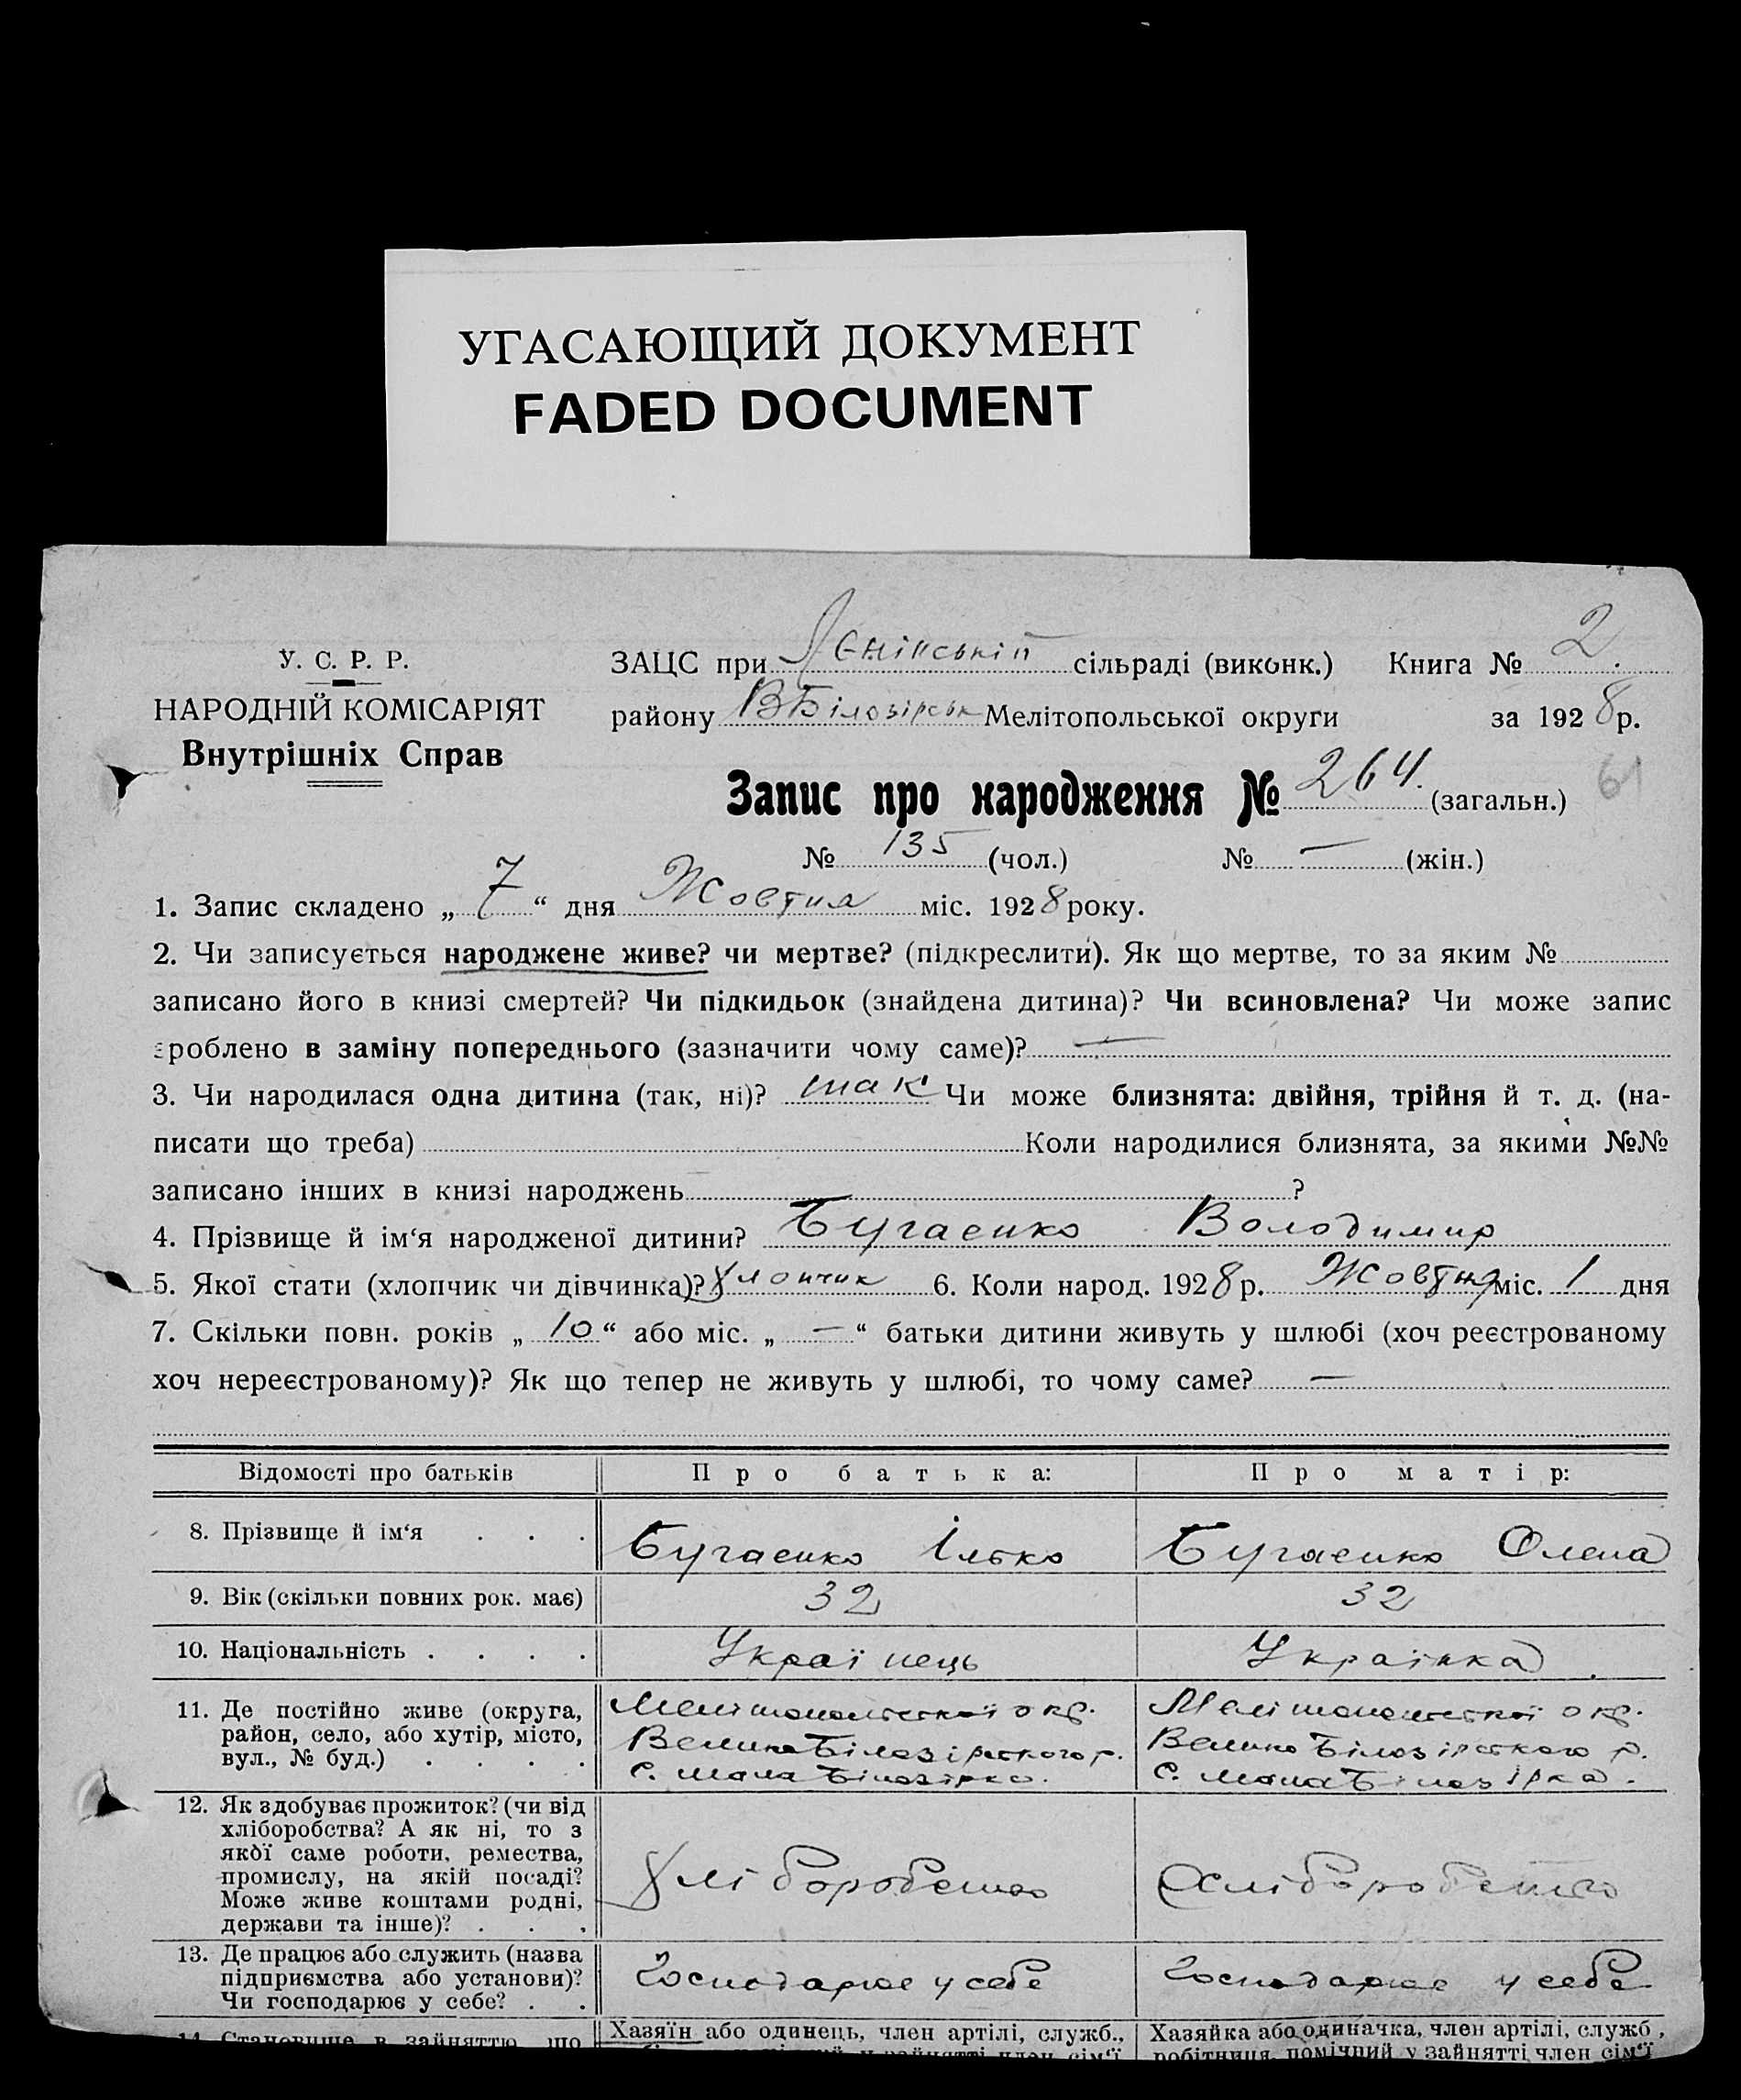 УГАСАЮЩИЙ ДОКУМЕНТ
FADED DOCUMENT
У. С. Р. Р.
НАРОДНІЙ КОМІСАРІЯТ
Внутрішніх Справ
ЗАЦС при Ленінській сільраді (виконк.) Книга № 2.
району ВБілозірськ Мелітопольської округи за 1928 р.
Запис про народження № 264. (загальн.) 61
№ 135 (чол.) № — (жін.)
1. Запис складено „ 7 “ дня Жовтня міс. 1928 року.
2. Чи записується народжене живе? чи мертве? (підкреслити). Як що мертве, то за яким №
записано його в книзі смертей? Чи підкидьок (знайдена дитина)? Чи всиновлена? Чи може запис
зроблено в заміну попереднього (зазначити чому саме)? —
3. Чи народилася одна дитина (так, ні)? так Чи може близнята: двійня, трійня й т. д. (на-
писати що треба) Коли народилися близнята, за якими №№
записано інших в книзі народжень ?
4. Прізвище й ім‘я народженої дитини? Бугаенко Володимир
5. Якої стати (хлопчик чи дівчинка)? Хлопчик 6. Коли народ. 1928 р. Жовтня міс. 1 дня
7. Скільки повн. років „ 10 “ або міс. „ — “ батьки дитини живуть у шлюбі (хоч реєстрованому
хоч нереєстрованому)? Як що тепер не живуть у шлюбі, то чому саме? —
Відомості про батьків Про батька: Про матір:
8. Прізвище й ім‘я . . . Бугаенко Ілько Бугаенко Олена
9. Вік (скільки повних рок. має) 32 32
10. Національність . . . . Українець Українка
11. Де постійно живе (округа,
район, село, або хутір, місто,
вул., № буд.) . . . .
Мелітопольської окр.
Велико Білозірського р.
с. Мала Білозірка.
Мелітопольської окр.
Велико Білозірського р.
с. Мала Білозірка.
12. Як здобуває прожиток? (чи від
хліборобства? А як ні, то з
якої саме роботи, ремества,
промислу, на якій посаді?
Може живе коштами родні,
держави та інше)? . . .
Хліборобство
Хліборобство
13. Де працює або служить (назва
підприємства або установи)?
Чи господарює у себе? . .
Господарює у себе
Господарює у себе
14. Становище в зайняттю, що
Хазяїн або одинець, член артілі, служб.,
Хазяйка або одиначка, член артілі, служб.,
робітниця, помічний у зайнятті член сім‘ї